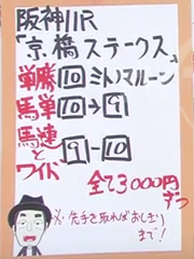 阪神11R
「京橋ステークス」
単勝 10 ミトノマルーン
馬単 10→9
馬連とワイド 9-10
全て3000円ずつ
※先手を取ればおしきりまで!